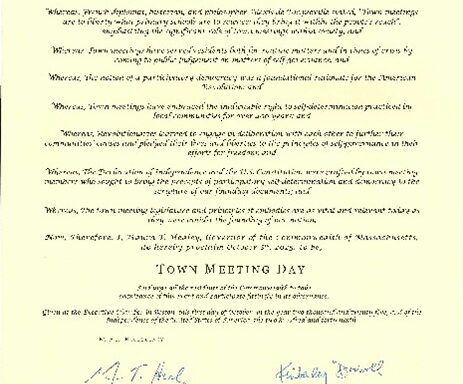 Whereas, French diplomat, historian, and philosopher Alexis de Tocqueville noted, "Town meetings
are to liberty what primary schools are to science; they bring it within the people's reach",
the significant role of town meetings within society, and
Whereas, Town meetings have served residents both for routine matters and in times of crisis by
coming to public judgement on matters of self governance, and
Whereas, The notion of a participatory democracy was a foundational rationale for the American
Revolution; and
Whereas, Town meetings have embraced the undeniable right to self-determination practiced by
local communities for over 400 years; and
Whereas, Revolutionaries learned to engage in deliberation with each other to further their
communities' causes and pledged their lives and liberties to the principles of self-governance in their
efforts for freedom; and
Whereas, The Declaration of Independence and the U.S. Constitution were crafted by town meeting
members who sought to bring the precepts of participatory self-determination and democracy to the
scripture of our founding documents; and
Whereas, The town meeting legislature and principles it embodies are as vital and relevant today as
they were amidst the founding of our nation,
Now, Therefore, I, Maura T. Healey, Governor of the Commonwealth of Massachusetts,
do hereby proclaim October 5th, 2025, to be,
TOWN MEETING DAY
And urge all the residents of the Commonwealth to take
cognizance of this event and participate fittingly in its observance.
Given at the Executive Chamber in Boston, this first day of October, in the year two thousand and twenty-five, and of the
Independence of the United States of America, the two hundred and forty-ninth